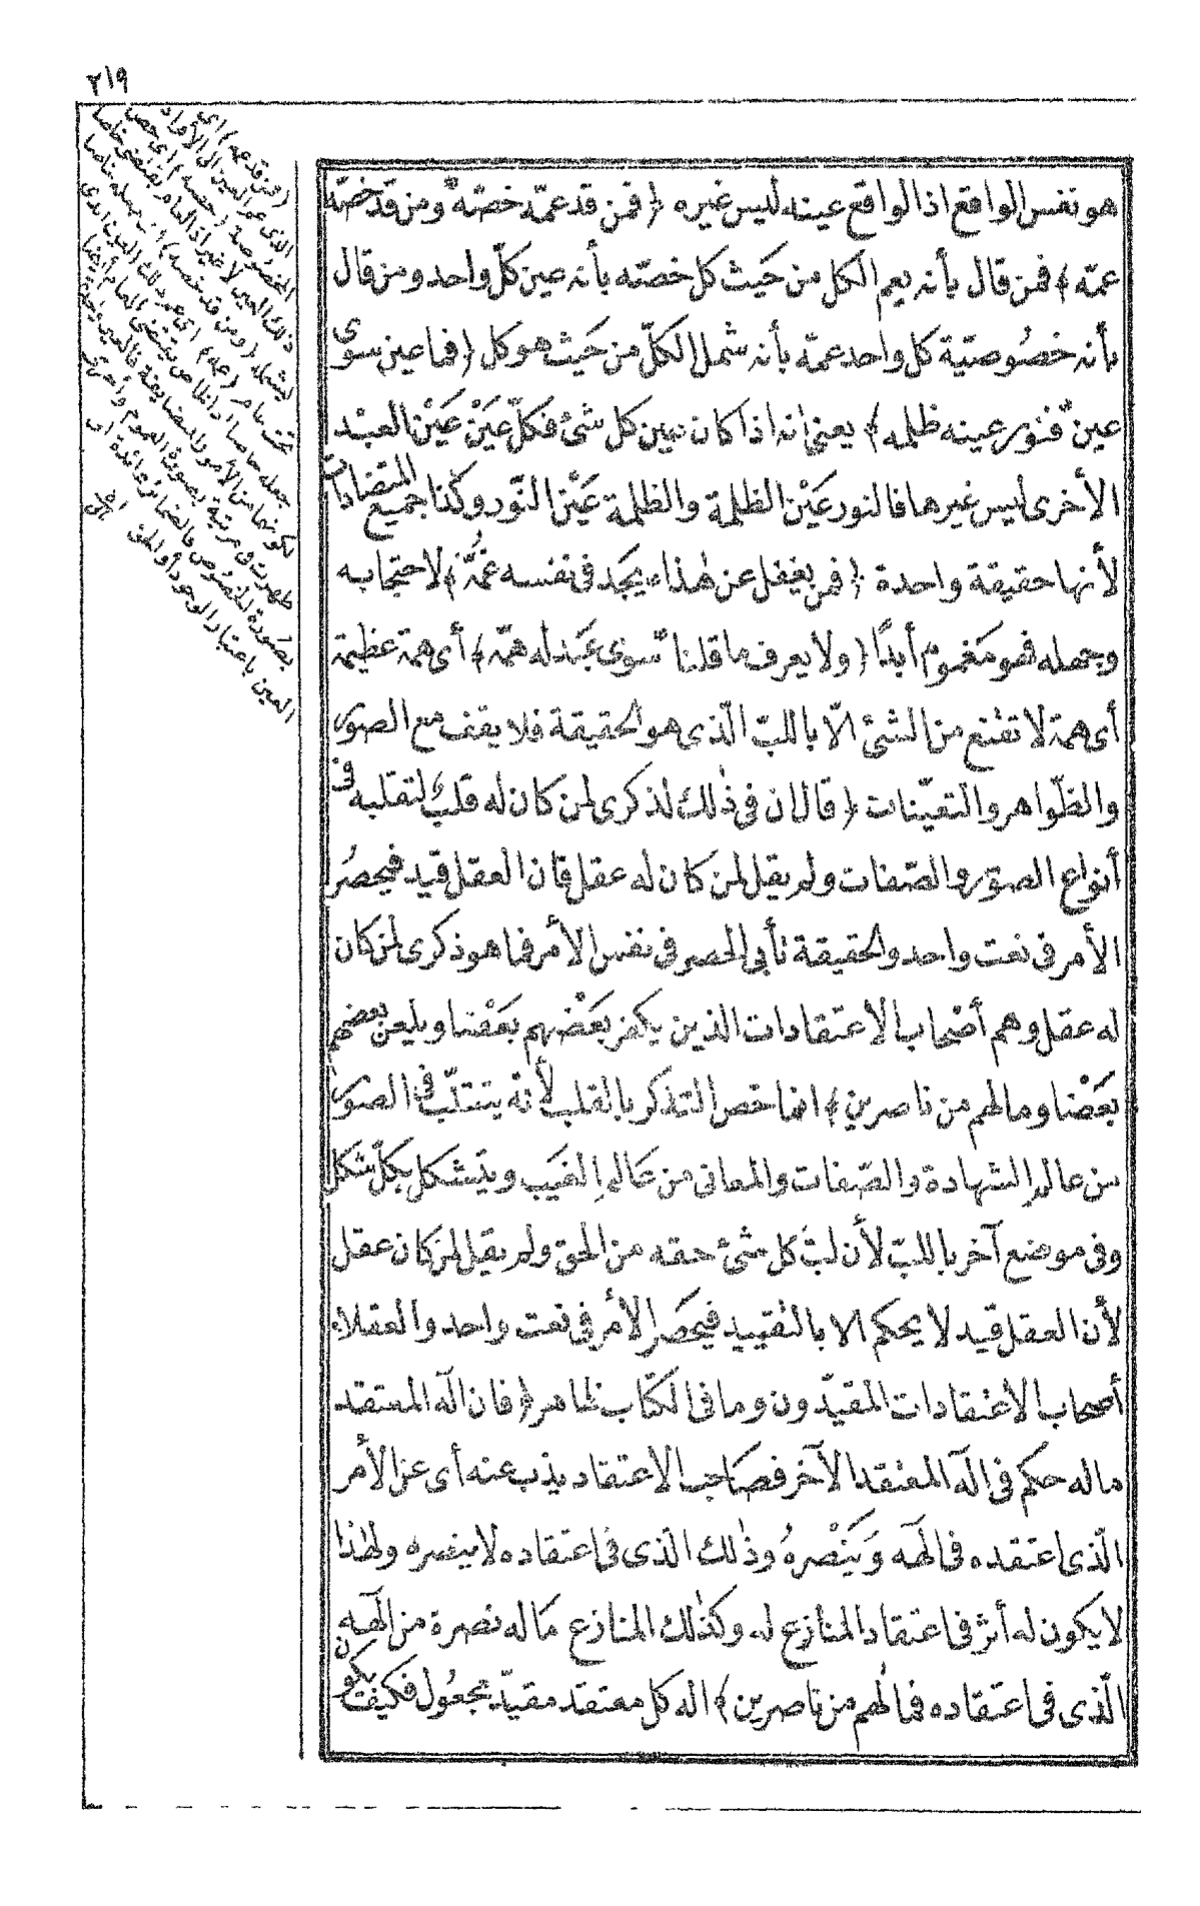 ٢١٩
هو نفس الواقع اذ الواقع عينه ليس غيره ﴿ فمن قد عمّه خصّه ومن قد خصّه
عمّه ﴾ فمن قال بأنه يعم الكل من حَيث كل خصّته بأنه عين كلّ واحد ومن قال
بأنه خصُوصتية كل واحد عمّه بأنه شمل الكلّ من حَيث هو كل ﴿ فما عين سوى
عين فنور عينه ظلمه ﴾ يعنى انه اذا كان عين كل شئ فكلّ عَيْن عَيْن العبْد
الأخرى ليس غيرها فالنور عَيْن الظلمة والظلمة عَيْن النّور وكذا جميع المتضادات
لأنها حقيقة واحدة ﴿ فمن يغفل عن هٰذا يجد فى نفسه غمَّه ﴾ لاحتجابه
وجهله فهو مَغموم أبدًا ﴿ ولا يعرف ما قلنا سّوى عبْد له همّه ﴾ أى همة عظيمة
أى همة لا تقنع من الشئ الّا باللبّ الّذى هو الحقيقة فلا يقف مع الصوَر
والظّواهر والتعيّنات ﴿ قال ان فى ذٰلك لذكرى لمن كان له قلبٌ لتقلبه فى
أنواع الصوَر والصّفات ولم يقل لمن كان له عقل فان العقل قيد فيحصُر
الأمر فى نعت واحد والحقيقة تأبى الحصر فى نفس الأمر فما هو ذكرى لمن كان
له عقل وهم أصْحاب الاعتقادات الذين يكفر بعَضْهم بعَضْا ويلعن بعضهم
بعَضْا وما لهم من ناصرين ﴾ انما خص التذكر بالقلب لأنه يتقلّب فى الصوَر
من عالم الشهادة والصّفات والمعانى من عَالم الغَيب ويتَشكل بكلّ شكل
وفى موضع آخر باللبّ لأن لبّ كل شئ حقه من الحق ولم يقل لمن كان عقل
لأن العقل قيد لا يحكم الا بالتقييد فيحصَر الأمر فى نعت واحد والعقلاء
أصحاب الاعتقادات المقيّدون وما فى الكتاب ظاهر ﴿ فان آله المعتقد
ما له حكم فى آله المعتقد الآخر فصَاحب الاعتقاد يذب عنه أى عن الأمر
الّذى اعتقده فى الٓهه وَيَنْصْرهُ وذٰلك الّذى فى اعتقاده لا ينصره ولهٰذا
لا يكون له أثر فى اعتقاد المنازع له وكذٰلك المنازع مَا له نصرة من الٓهه
الّذى فى اعتقاده فما لهم من ناصرين ﴾ اله كل معتقد مقيّد مجعُول فكيف يكون
(فمن قد عمه) اى
الذى هو العين الى الأفراد
المخصُوصة (خصه) اى خص
ذلك العين لا غير
ليشمله (ومن قد خصه)
(عمه)
جعله خاصا
لكونهما من الأمور المتضايفة فالعين
ظهرت فى مرتبة بصورة العموم وأخرى
بصَورة الخصُوص فالضمائر عائدة الى
العين باعتبار الوجود أو الحق